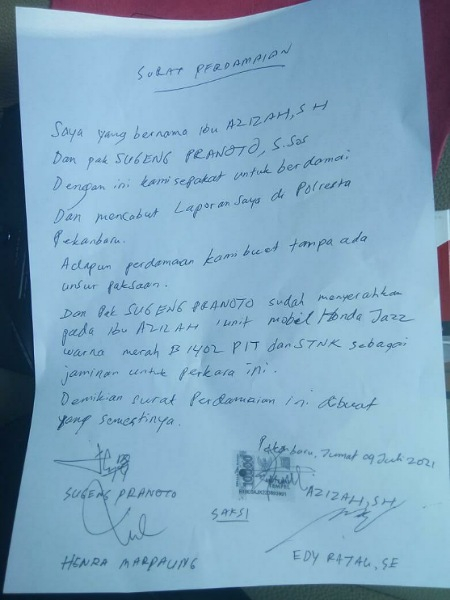 SURAT PERDAMAIAN
Saya yang bernama ibu AZIZAH, S H
Dan pak SUGENG PRANOTO, S.Sos
Dengan ini kami sepakat untuk berdamai
Dan mencabut Laporan saya di Polresta
Pekanbaru.
Adapun perdamaan kami buat tampa ada
unsur paksaan.
Dan Pak SUGENG PRANOTO sudah menyerahkan
pada ibu AZIZAH 1 unit mobil Honda Jazz
warna merah B 1402 PIT dan STNK sebagai
jaminan untuk perkara ini.
Demikian surat Perdamaian ini dibuat
yang semestinya.
Pekanbaru, Jumat 09 Juli 2021
10000
TEMPEL
SUGENG PRANOTO
AZIZAH, SH
SAKSI
HENRA MARPAUNG
EDY RAJAG, SE